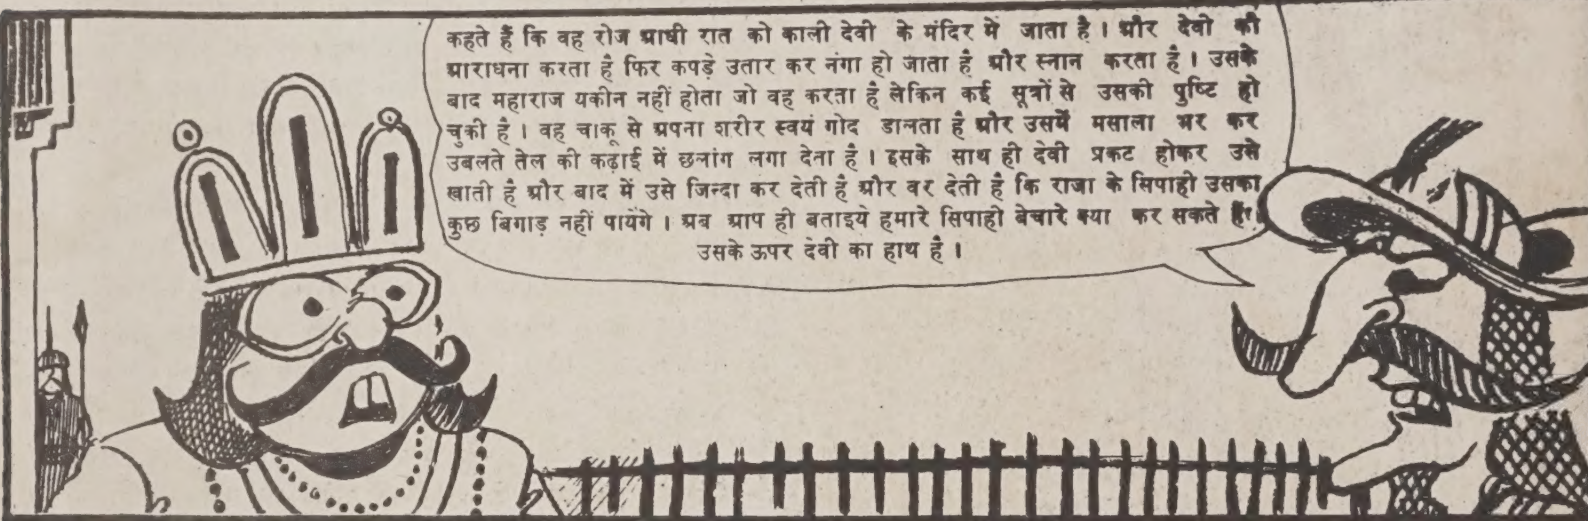 कहते हैं कि वह रोज आधी रात को काली देवी के मंदिर में जाता है । और देवी की
आराधना करता है फिर कपड़े उतार कर नंगा हो जाता है और स्नान करता है । उसके
बाद महाराज यकीन नहीं होता जो वह करता है लेकिन कई सूत्रों से उसकी पुष्टि हो
चुकी है । वह चाकू से अपना शरीर स्वयं गोद डालता है और उसमें मसाला भर कर
उबलते तेल की कढ़ाई में छलांग लगा देता है । इसके साथ ही देवी प्रकट होकर उसे
खाती है और बाद में उसे जिन्दा कर देती है और वर देती है कि राजा के सिपाही उसका
कुछ बिगाड़ नहीं पायेंगे । अब आप ही बताइये हमारे सिपाही बेचारे क्या कर सकते हैं।
उसके ऊपर देवी का हाथ है ।